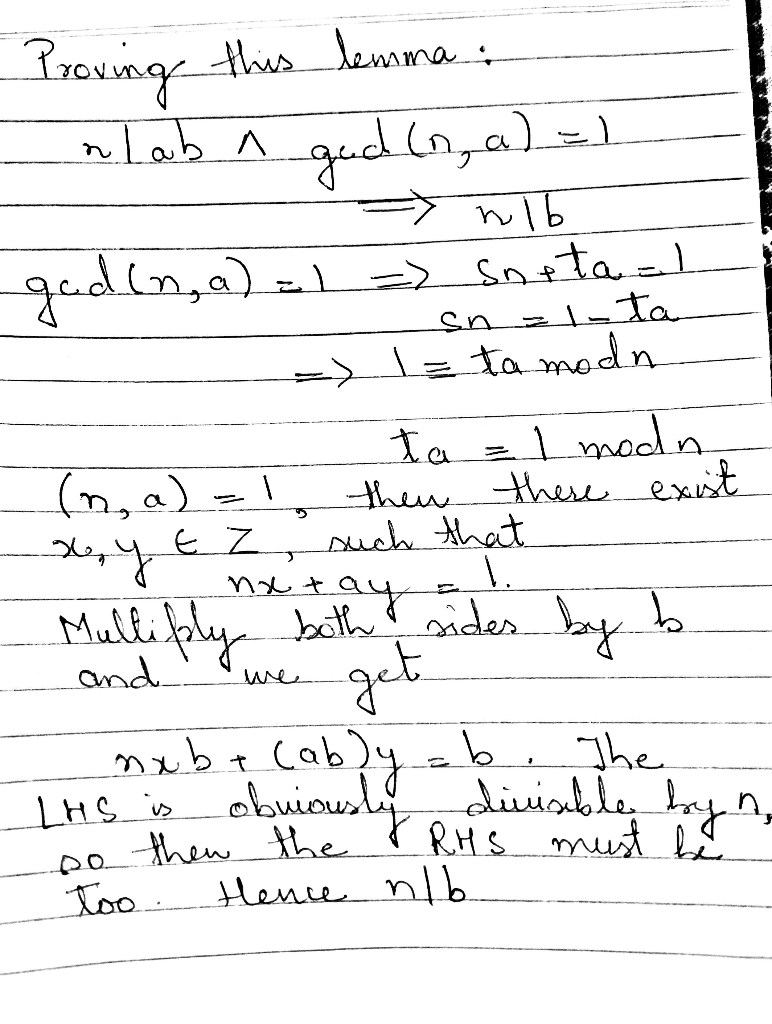 Proving this lemma :
n | ab ∧ gcd (n, a) = 1
=> n | b
gcd (n, a) = 1 => sn + ta = 1
sn = 1 - ta
=> 1 ≡ ta mod n
ta ≡ 1 mod n
(n, a) = 1, then there exist
x, y ∈ Z, such that
nx + ay = 1.
Multiply both sides by b
and we get
nxb + (ab)y = b. The
LHS is obviously divisible by n,
so then the RHS must be
too. Hence n | b